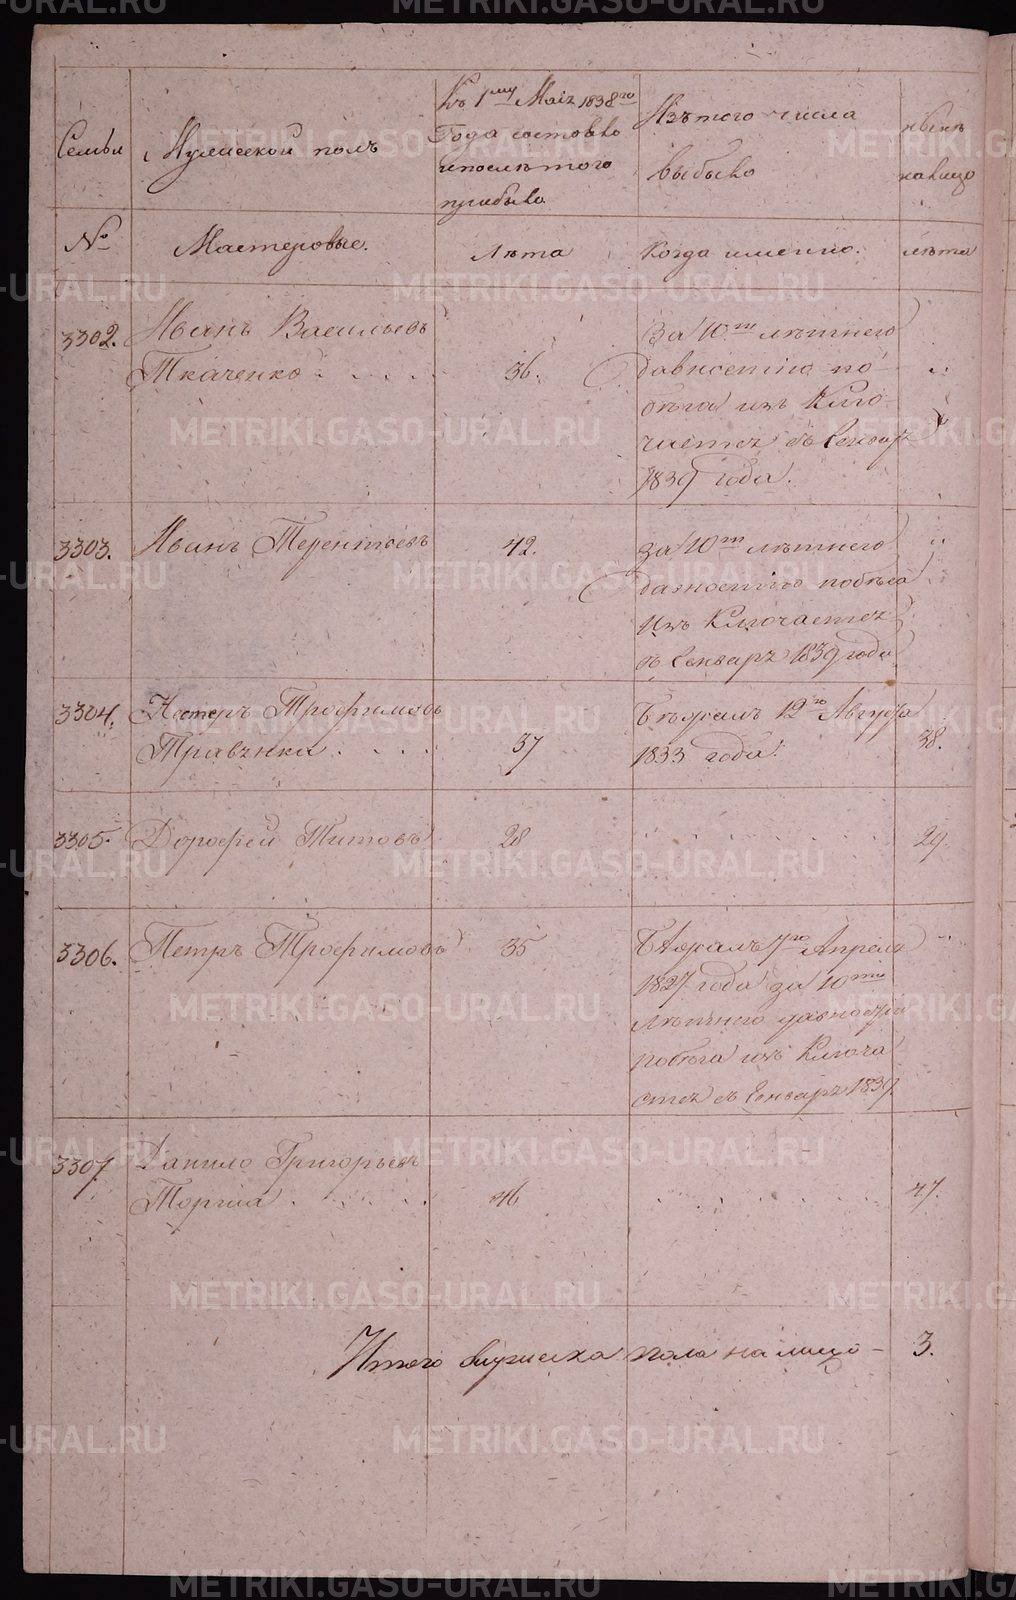 METRIKI.GASO-URAL.RU
Семьи
Мужескои полъ
Къ 1му Маiя 1838го
Года состояло
и послѣ того
прибыло
Изъ того числа
выбыло
нынѣ
на лицо
№
Мастеровые.
Лѣта
Когда именно.
лѣта
3302.
Иванъ Васильевъ
Ткаченко . . . .
36.
За 10ти лѣтнею
давностiю по-
бѣга изъ Клю-
чается въ Генвар
1839 года.
3303.
Иванъ Терентьевъ
42.
за 10ти лѣтнею
давностiю побѣга
изъ Ключается
въ Генварѣ 1839 года
3304.
Нестеръ Трофимовъ
Травянка . . . .
37
Бѣжалъ 12го Августа
1833 года.
38.
3305.
Дорофей Титовъ
28
29.
3306.
Петръ Трофимовъ
35
Бѣжалъ 7го Апреля
1827 года за 10ти
лѣтнею давностiю
побѣга изъ Ключа
ется въ Генварѣ 1839.
3307.
Данило Григорьевъ
46
47.
Итого мужеска пола на лицо – 3.